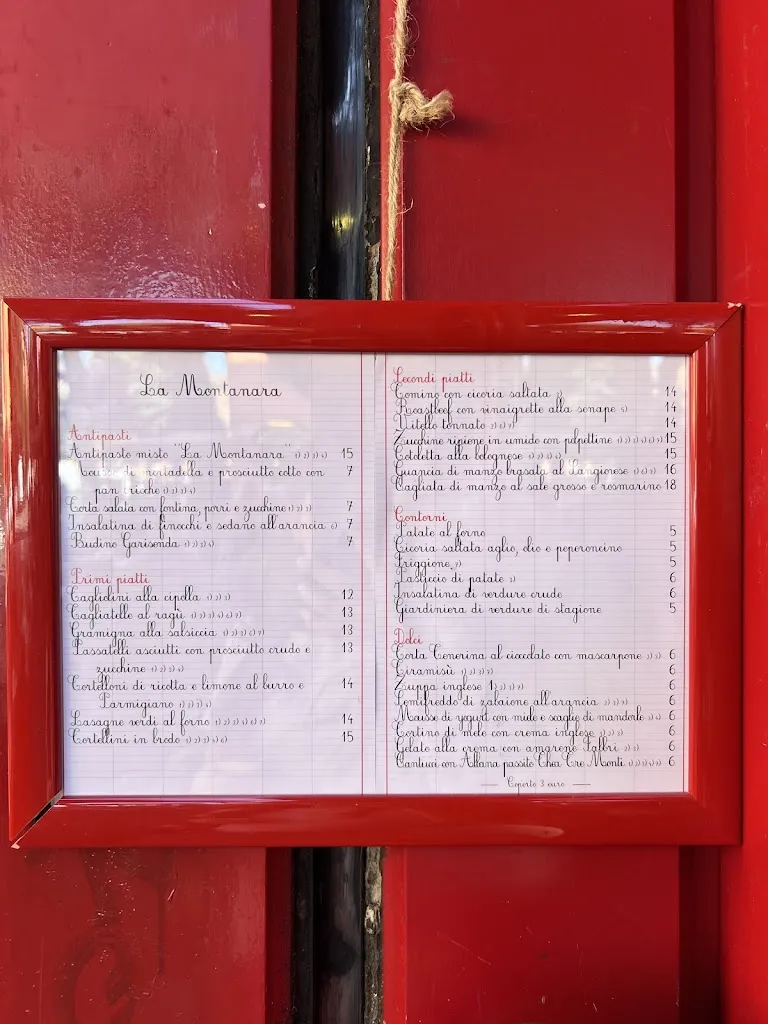 La Montanara
Antipasti
Antipasto misto "La Montanara" 15
Mousse di mortadella e prosciutto cotto con 7
pan brioche
Torta salata con fontina, porri e zucchine 7
Insalatina di finocchi e sedano all'arancia 7
Budino Garisenda 7
Primi piatti
Tagliolini alla cipolla 12
Tagliatelle al ragù 13
Gramigna alla salsiccia 13
Passatelli asciutti con prosciutto crudo e 13
zucchine
Tortelloni di ricotta e limone al burro e 14
Parmigiano
Lasagne verdi al forno 14
Tortellini in brodo 15
Secondi piatti
Tomino con cicoria saltata 14
Roastbeef con vinaigrette alla senape 14
Vitello tonnato 14
Zucchine ripiene in umido con polpettine 15
Cotoletta alla bolognese 15
Guancia di manzo brasata al Sangiovese 16
Tagliata di manzo al sale grosso e rosmarino 18
Contorni
Patate al forno 5
Cicoria saltata aglio, olio e peperoncino 5
Friggione 5
Pasticcio di patate 6
Insalatina di verdure crude 6
Giardiniera di verdure di stagione 5
Dolci
Torta Tenerina al cioccolato con mascarpone 6
Tiramisù 6
Zuppa inglese 6
Semifreddo di zabaione all'arancia 6
Mousse di yogurt con miele e scaglie di mandorle 6
Tortino di mele con crema inglese 6
Gelato alla crema con amarene Fabbri 6
Cantucci con Albana passito Tre Monti 6
Coperto 3 euro